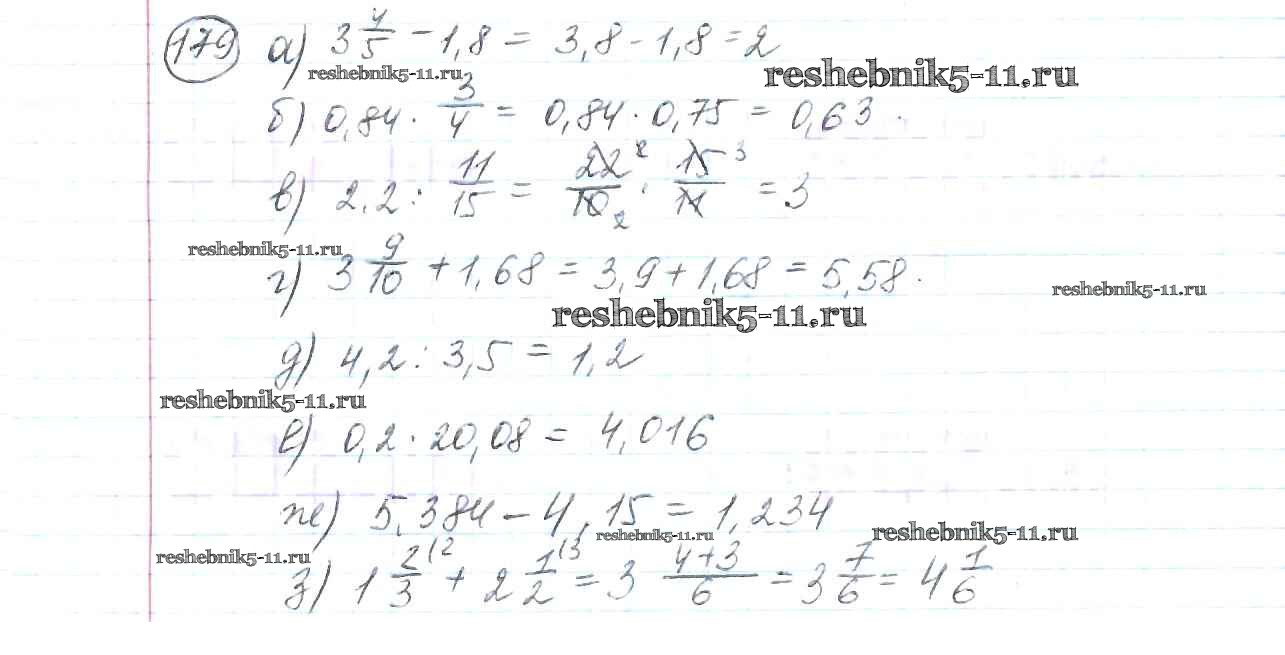 179 а) 3 4/5 - 1,8 = 3,8 - 1,8 = 2
reshebnik5-11.ru
reshebnik5-11.ru
б) 0,84 · 3/4 = 0,84 · 0,75 = 0,63.
в) 2,2 : 11/15 = 22/10 · 15/11 = 3
reshebnik5-11.ru
г) 3 9/10 + 1,68 = 3,9 + 1,68 = 5,58.
reshebnik5-11.ru
reshebnik5-11.ru
д) 4,2 : 3,5 = 1,2
reshebnik5-11.ru
е) 0,2 · 20,08 = 4,016
ж) 5,384 - 4,15 = 1,234
reshebnik5-11.ru
reshebnik5-11.ru
reshebnik5-11.ru
з) 1 2/3 + 2 1/2 = 3 (4+3)/6 = 3 7/6 = 4 1/6